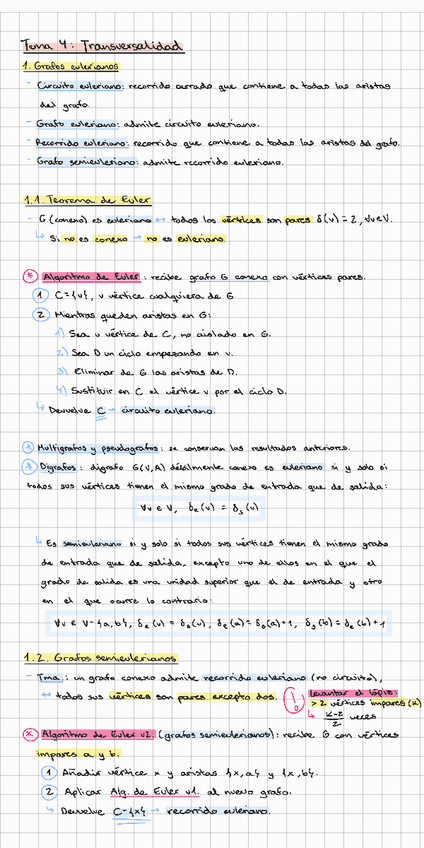 Tema 4: Transversalidad
1. Grafos eulerianos
- Circuito euleriano: recorrido cerrado que contiene a todas las aristas
del grafo.
- Grafo euleriano: admite circuito euleriano.
- Recorrido euleriano: recorrido que contiene a todas las aristas del grafo.
- Grafo semieuleriano: admite recorrido euleriano.
1.1. Teorema de Euler
- G (conexo) es euleriano ↔ todos los vértices son pares δ(v) = 2, ∀v∈V.
↳ Si no es conexo → no es euleriano.
* Algoritmo de Euler: recibe grafo G conexo con vértices pares.
1 C={v}, v vértice cualquiera de G
2 Mientras queden aristas en G:
1) Sea v vértice de C, no aislado en G.
2) Sea D un ciclo empezando en v.
3) Eliminar de G las aristas de D.
4) Sustituir en C el vértice v por el ciclo D.
↳ Devuelve C → circuito euleriano.
* Multigrafos y pseudografos: se conservan los resultados anteriores.
* Digrafos: digrafo G(V,A) débilmente conexo es euleriano si y solo si
todos sus vértices tienen el mismo grado de entrada que de salida:
∀v ∈ V, δe(v) = δs(v)
↳ Es semieuleriano si y solo si todos sus vértices tienen el mismo grado
de entrada que de salida, excepto uno de ellos en el que el
grado de salida es una unidad superior que el de entrada y otro
en el que ocurre lo contrario:
∀v ∈ V-{a,b}, δe(v) = δs(v), δe(a) = δs(a)+1, δs(b) = δe(b)+1
1.2. Grafos semieulerianos
- Tma.: un grafo conexo admite recorrido euleriano (no circuito),
↔ todos sus vértices son pares excepto dos.
Levantar el lápiz:
> 2 vértices impares (k)
↳ k-2/2 veces
* Algoritmo de Euler v2 (grafos semieulerianos): recibe G con vértices
impares a y b.
1 Añadir vértice x y aristas {x,a} y {x,b}.
2 Aplicar Alg. de Euler v1. al nuevo grafo.
↳ Devuelve C-{x} → recorrido euleriano.